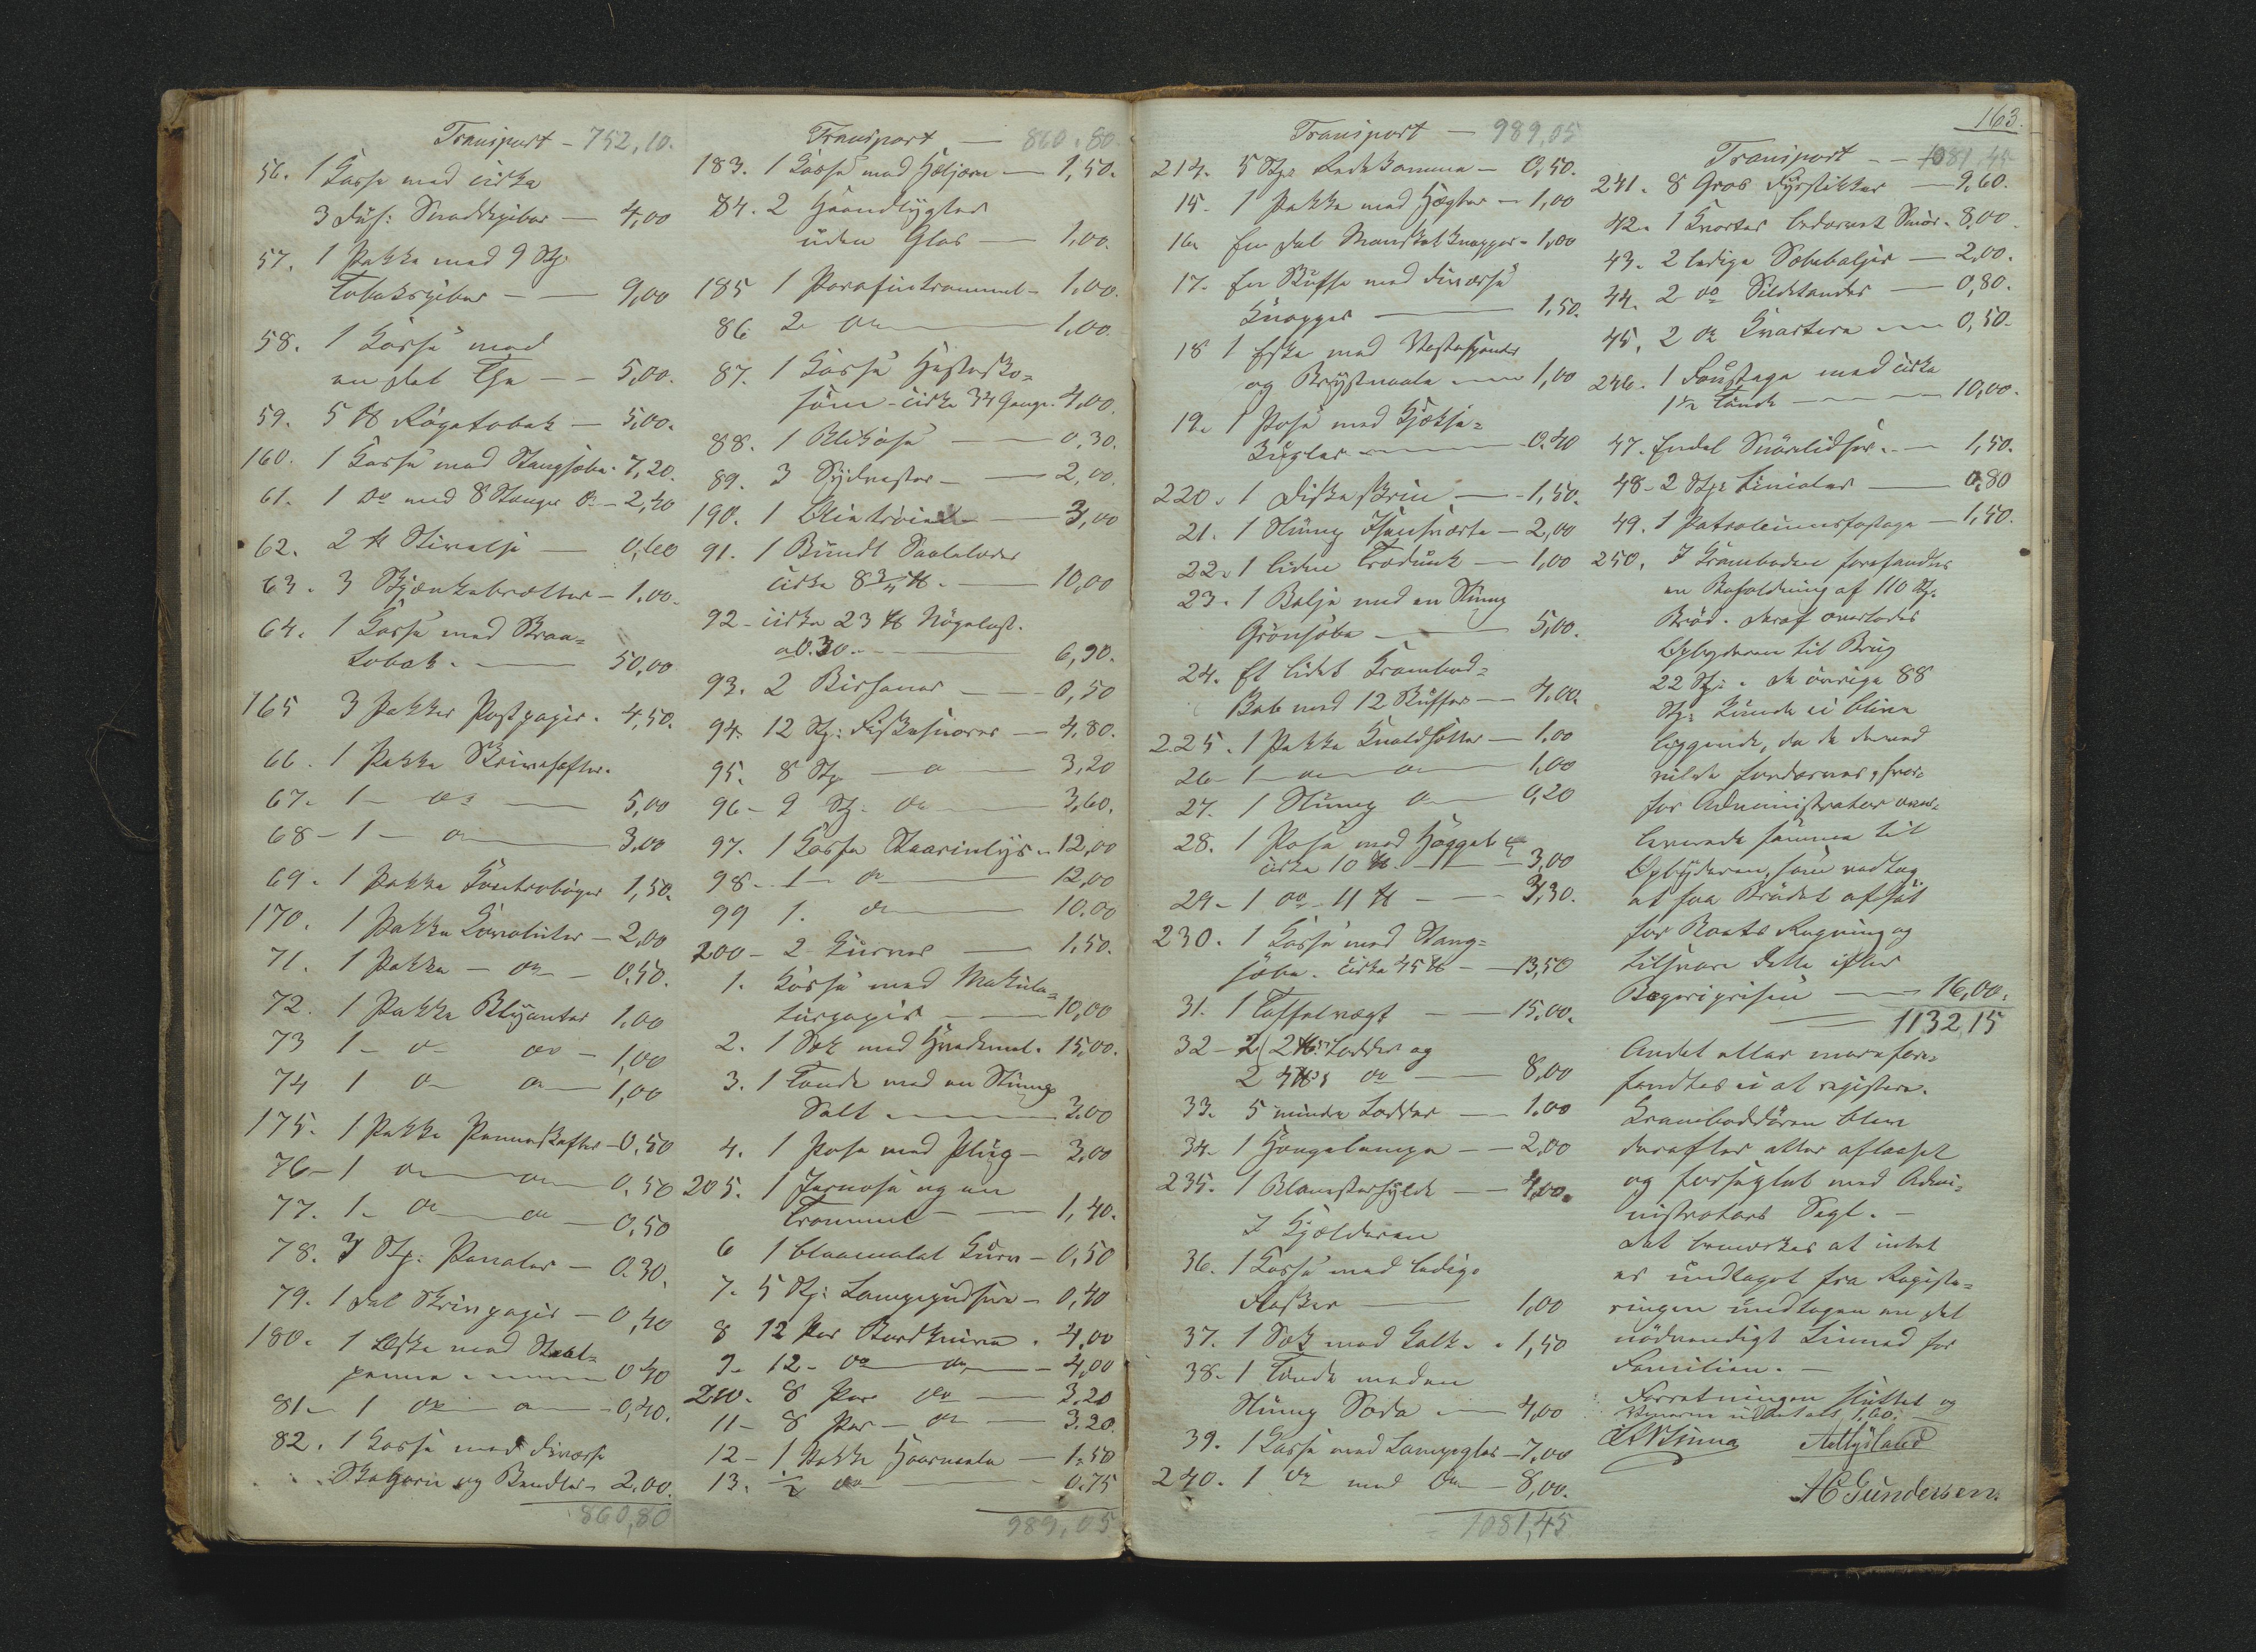 Transport - 752,10.
56. 1 Kasse med cirka
3 Dus: Snaddepiber - 4,00
57. 1 Pakke med 9 Stz:
Tobakspiber - - 9,00
58. 1 Kasse med
en Del The - - 5,00.
59. 5 ℔ Røgetobak - 5,00.
160. 1 Kasse med Stangsæbe. 7,20.
61. 1 Do med 8 Stanger Do - 2,40
62. 2 ℔ Stivelse - 0,60
63. 3 Skjænkebrætter - 1,00.
64. 1 Kasse med Skraa=
tobak. - 50,00
165 3 Pakker Postpapir. 4,50.
66. 1 Pakke Skrivehefter.
67. 1 - Do - 5,00
68 - 1 - Do - 3,00
69. 1 Pakke Kontrabøger 1,50.
170. 1 Pakke Konvolutter - 2,00
71. 1 Pakke - Do - 0,50.
72. 1 Pakke Blyanter 1,00
73 1 - Do Do - 1,00
74 1 Do Do 1,00
175. 1 Pakke Penneskafter - 0,50
76 - 1 Do Do 0,50
77. 1 - Do Do - 0,50
78. 3 Stz: Penaler - 0.30.
79. 1 Del Skrivpapir - 0,40
180. 1 Æske med Staal=
penne - 0 40
81 - 1 Do Do - 0,40.
82. 1 Kasse med diverse
og Bendler - 2,00.
860,80
Transport - 860,80
183. 1 Kasse med Hæljern - 1,50.
84. 2 Haandlygter
uden Glas - 1,00.
185 1 Parafintrommel - 1,00.
86 2 Do - 1,00
87. 1 Kasse Hestesko=
søm - cirka 34 Gange. 4,00.
88. 1 Blikøse - 0,30.
89. 3 Sydvester - 2,00.
190. 1 - 3,00
91. 1 Bundt Saalelæder
cirka 8¾ ℔. - 10,00
92 - cirka 23 ℔ Nøgelost.
a 0.30. - 6,90.
93. 2 - 0,50
94. 12 Stz: Fiskesnører - 4,80.
95. 8 Stz - Do - 3,20
96 - 9 Stz. Do - 3,60.
97. 1 Kasse Stearinlys - 12,00
98 - 1 - Do - 12,00
99 1. Do - 10.00
200 - 2 Kurver - 1,50.
1. Kasse med Makula=
turpapir - 10,00
2. 1 Sæk med Hvedemel. 15,00.
3. 1 Tønde med en Slump
Salt - 3.00
4. 1 Pose med Pløg - 3,00
205. 1 Jernøse og en
Trommel - 1,40.
6 1 blaamalet Kurv - 0,50
7. 5 Stz: Lampepudsere - 0,40
8 12 Par Bordknive. 4,00
9. 12 - Do Do - 4,00
210. 8 Par Do - 3,20
11 - 8 Par - Do - 3.20.
12 - 1 Pakke Haarnaale - 1,50
13. ½ Do - 0.75
989,05
163.
Transport - 989,05
214. 5 Stz: Redekamme - 0,50.
15. 1 Pakke med Hægter - 1,00
16. En Del Mansketknapper - 1,00
17. En Skuffe med diverse
Knapper - 1,50.
18 1 Eske med Vestespænder
og Brystnaale - 1,00
19. 1 Pose med
Kugler - 0.40
220. 1 Fiskeskrin - 1,50.
21. 1 Slump - 2,00
22. 1 liden Trædunk - 1,00
23. 1 Balje med en Slump
Grønsæbe - 5,00.
24. Et lidet Krambod=
med 12 Skuffer - 4,00.
225. 1 Pakke Knaldhætter - 1.00
26 - 1 - Do Do - 1,00
27. 1 Slump Do - 0,20
28. 1 Pose med Haggel
cirka 10 ℔ - 3,00
29 - 1 Do - 11 ℔ - 3,30.
230. 1 Kasse med Stang=
sæbe. cirka 45 ℔ - 13,50
31. 1 Taffelvægt - 15,00.
32 - 2/ 2℔s Lodder og
2 4℔s Do - 8,00
33. 5 mindre Lodder - 1.00
34. 1 Hængelampe - 2,00
235. 1 Blomsterhylde - 4,00.
I Kjælderen
36. 1 Kasse med ledige
Flasker - 1,00
37. 1 Sæk med Kalk. - 1,50
38. 1 Tønde med en
Slump Soda - 4,00
39. 1 Kasse med Lampeglas - 7,00
240. 1 Do med Do - 8,00.
1081,45
Transport - - 1081,45
241. 8 Gros Fyrstikker - 9,60.
42. 1 Kvarter bedærvet Smør. 8,00.
43. 2 ledige Sæbebaljer - 2,00.
44. 2 Do Sildetønder - 0,80.
45. 2 Do Kvartere - 0,50.
246. 1 Foustage med cirka
1½ Tønde - 10,00.
47. Endel Snørelidser. - 1,50.
48 - 2 Stz: Linialer - 0,80
49. 1 Petroleumsfastage - 1,50.
250. I Kramboden forefandtes
en Beholdning af 110 Stz.
Brød. Deraf overlodes
Opbyderen til Brug
22 Stz:. De øvrige 88
Stz: kunde ei blive
liggende, da de derved
vilde fordærves, hvor=
for Administrator over=
leverede samme til
Opbyderen, som vedtog
at faa Brødet afsat
for Boets Regning og
tilsvare dette efter
Bageriprisen - 16,00.
1132,15
Andet eller mere fore=
fandtes ei at registere.
Kramboddøren blev
derefter atter aflaaset
og forseglet med Admi=
nistrators Segl. -
Det bemærkes at intet
er undtaget fra Registe=
ringen undtagen en Del
nødvendigt Linned for
Familien. -
Forretningen sluttet og
1,60.
HGundersen.